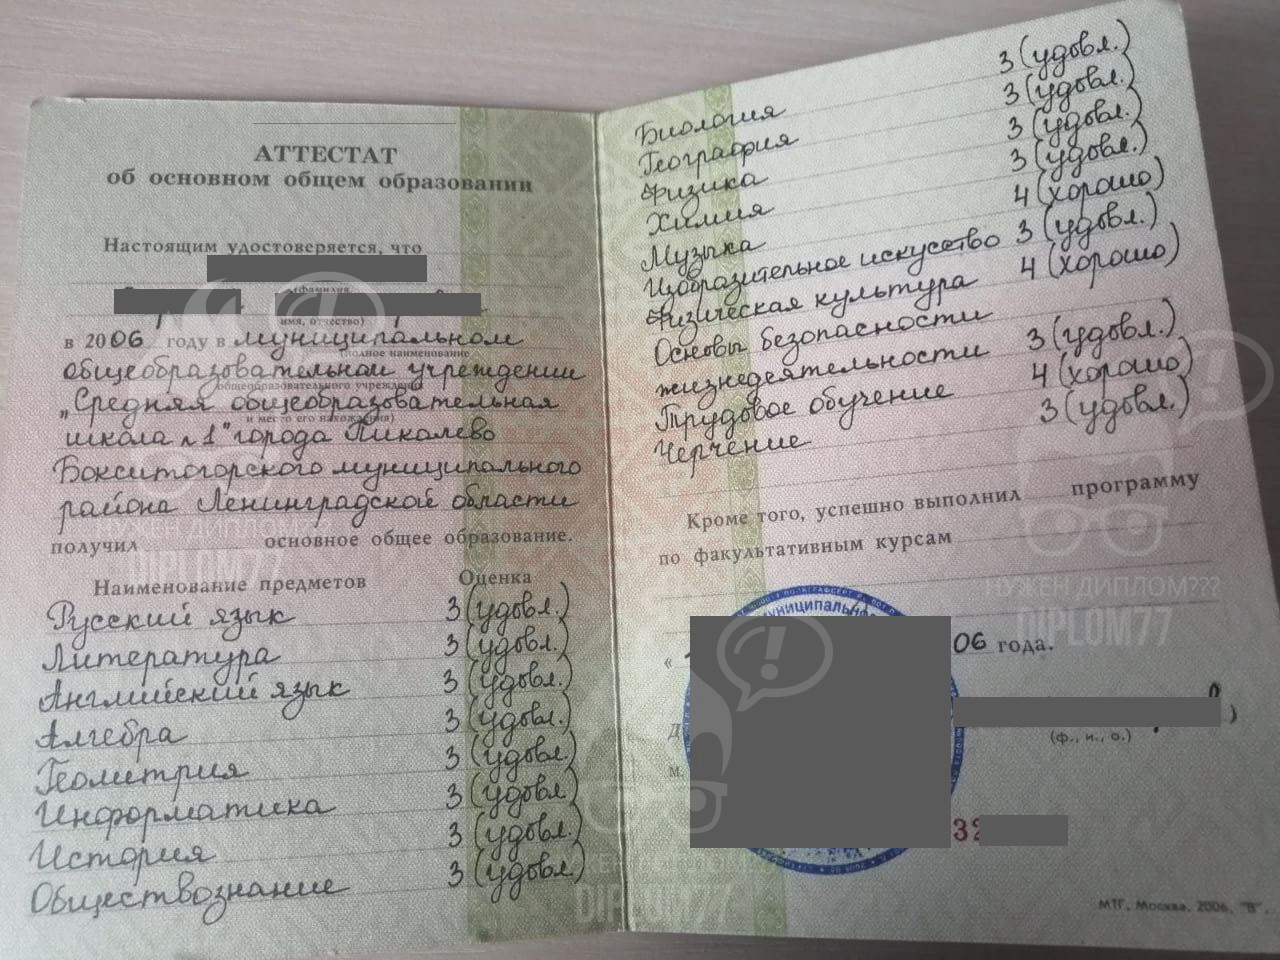 АТТЕСТАТ
об основном общем образовании
Настоящим удостоверяется, что
(фамилия,
имя, отчество)
в 2006 году в муниципальном
(полное наименование
общеобразовательном учреждении
общеобразовательного учреждения
„Средняя общеобразовательная
и место его нахождения)
школа №1" города Пикалево
Бокситогорского муниципального
района Ленинградской области
получил основное общее образование.
Наименование предметов Оценка
Русский язык 3 (удовл.)
Литература 3 (удовл.)
Английский язык 3 (удовл.)
Алгебра 3 (удовл.)
Геометрия 3 (удовл.)
Информатика 3 (удовл)
История 3 (удовл.)
Обществознание 3 (удовл.)
Биология 3 (удовл.)
География 3 (удовл.)
Физика 3 (удовл.)
Химия 3 (удовл.)
Музыка 4 (хорошо)
Изобразительное искусство 3 (удовл.)
Физическая культура 4 (хорошо)
Основы безопасности
жизнедеятельности 3 (удовл.)
Трудовое обучение 4 (хорошо)
Черчение 3 (удовл.)
Кроме того, успешно выполнил программу
по факультативным курсам
муниципально
« 06 года.
)
(ф., и., о.)
М.
32
МТГ, Москва, 2006, "В".
НУЖЕН ДИПЛОМ???
DIPLOM77
НУЖЕН ДИПЛОМ???
DIPLOM77
DIPLOM77